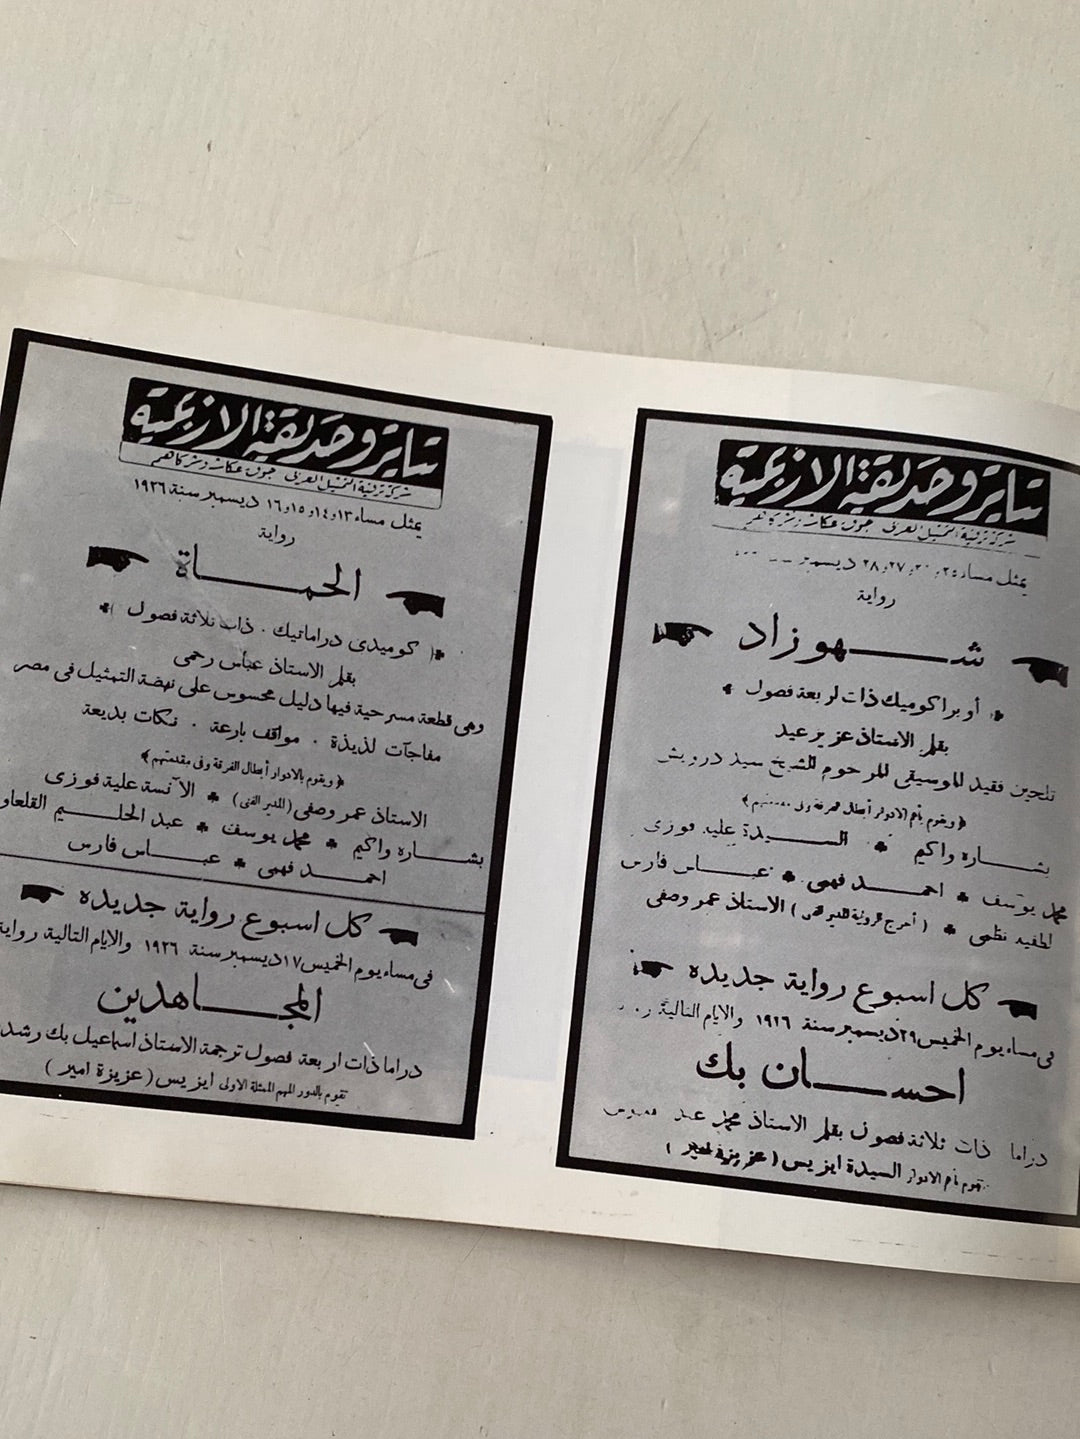 تياترو حديقة الازبكية
شركة ترقية التمثيل العربى جوق عكاشه وشركاهم
يمثل مساء ١٣و١٤و١٥و١٦ ديسمبر سنة ١٩٢٦
رواية
الحمــاة
كوميدى دراماتيك . ذات ثلاثة فصول
بقلم الاستاذ عباس رحمى
وهى قطعة مسرحية فيها دليل محسوس على نهضة التمثيل فى مصر
مفاجآت لذيذة . مواقف بارعة . نكات بديعة
﴿ ويقوم بالادوار أبطال الفرقة وفى مقدمتهم ﴾
الاستاذ عمر وصفى (المدير الفنى) ♣ الآنسة علية فوزى
بشــاره واكيم ♣ محمد يوسف ♣ عبد الحليــم القلعاو
احمــد فهمى ♣ عبــاس فارس
كل اسبوع رواية جديده
فى مساء يوم الخميس ١٧ ديسمبر سنة ١٩٢٦ والايام التالية رواية
المجــاهدين
دراما ذات اربعة فصول ترجمة الاستاذ اسماعيل بك رشد
تقوم بالدور المهم الممثلة الاولى ايزيس (عزيزة امير)
تياترو حديقة الازبكية
شركة ترقية التمثيل العربى جوق عكاشه وشركاهم
يمثل مساء ٢٥و و٢٧و٢٨ ديسمبر
رواية
شــهرزاد
أوبرا كوميك ذات اربعة فصول
بقلم الاستاذ عزيز عيد
تلحين فقيد الموسيقى المرحوم الشيخ سيد درويش
﴿ ويقوم بأهم الادوار أبطال الفرقة وفى مقدمتهم ﴾
بشــاره واكيم ♣ السيدة علية فوزى
محمد يوسف ♣ احمــد فهمى ♣ عبــاس فارس
لطفيه نظمى ♣ (أخرج الرواية المدير الفنى) الاستاذ عمر وصفى
كل اسبوع رواية جديده
فى مساء يوم الخميس ٢٩ ديسمبر سنة ١٩٢٦ والايام التالية
احســان بك
دراما ذات ثلاثة فصول بقلم الاستاذ محمد عبد القدوس
تقوم بأهم الادوار السيدة ايزيس (عزيزة امير)